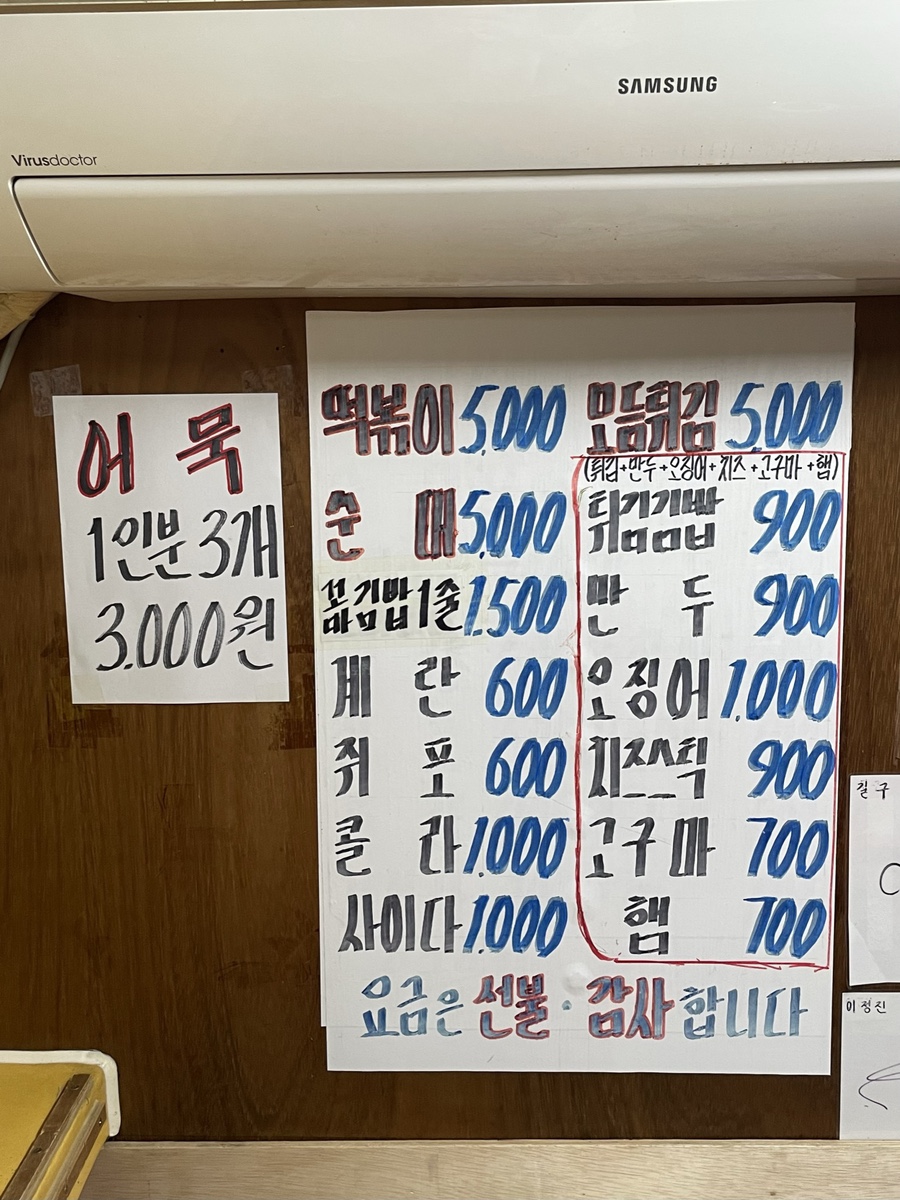 SAMSUNG
Virusdoctor
어묵
1인분 3개
3.000원
떡볶이 5,000
순대 5,000
꼬마김밥 1줄 1,500
계란 600
쥐포 600
콜라 1,000
사이다 1,000
모듬튀김 5,000
(튀김+만두+오징어+치즈+고구마+햄)
튀김김밥 900
만두 900
오징어 1,000
치즈스틱 900
고구마 700
햄 700
요금은 선불·감사합니다
길구
이정진